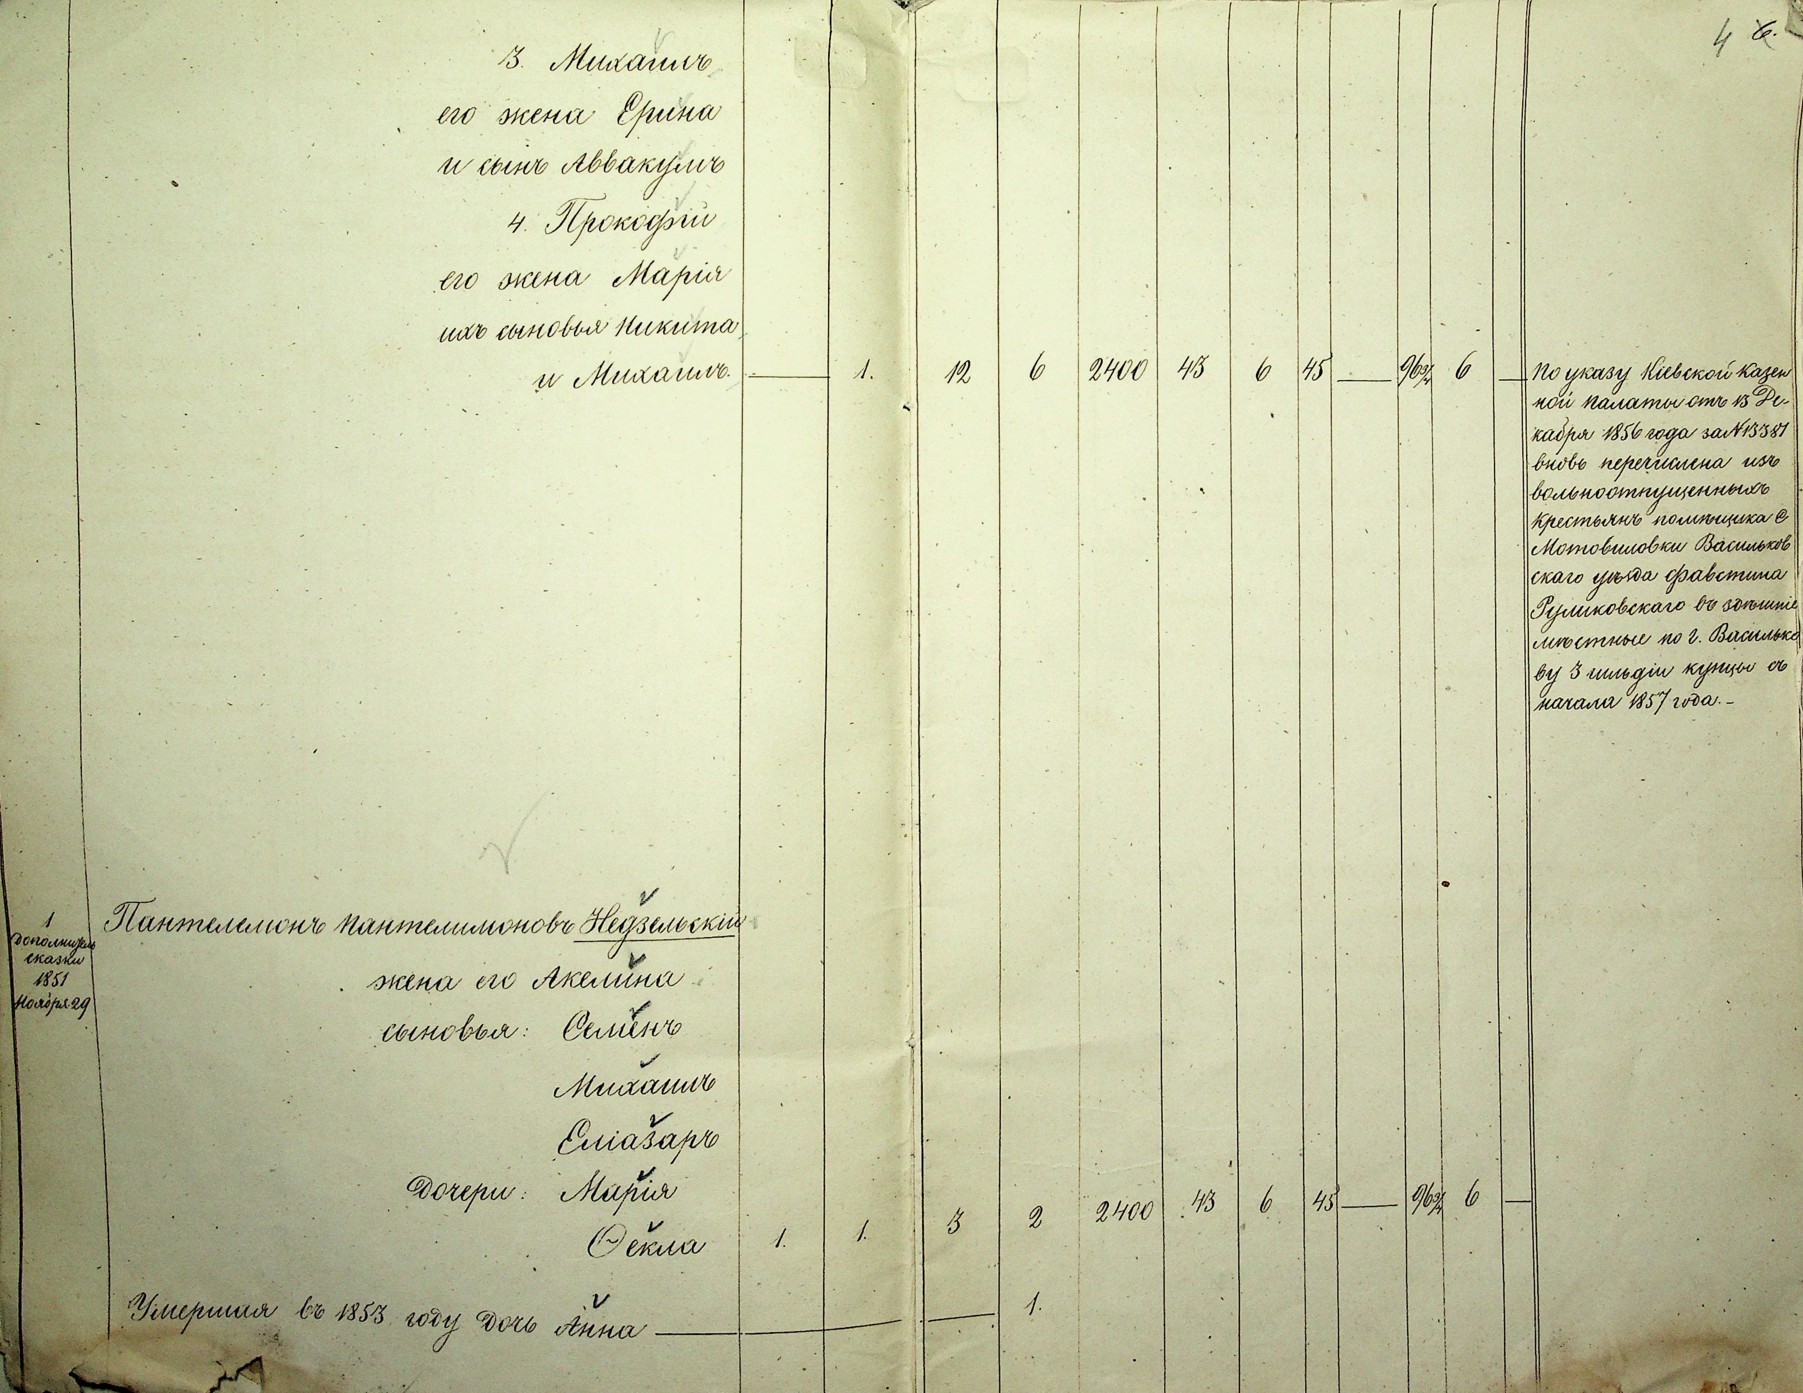 4 6.
3. Михаилъ
его жена Ерина
и сынъ Аввакумъ
4. Прокофій
его жена Марія
ихъ сыновья Никита
и Михаилъ. — 1. 12 6 2400 43 6 45 — 96¾ 6 —
По указу Кіевской Казен
ной Палаты отъ 13 Де-
кабря 1856 года за N 13381
вновь перечислена изъ
вольноотпущенныхъ
крестьянъ помѣщика С
Мотовиловки Васильков
скаго уѣзда Фавстина
Руликовскаго въ здѣшніе
мѣстные по г. Василько
ву 3 гильдіи купцы съ
начала 1857 года. –
1
Дополнитель
сказки
1851
Ноября 29
Пантелемонъ Пантелимоновъ Недзельскій
жена его Акелина
сыновья: Семенъ
Михаилъ
Еліазаръ
Дочери: Марія
Ѳекла 1. 1. 3 2 2400 43 6 45 — 96¾ 6 —
Умершая въ 1853 году дочь Анна — 1.